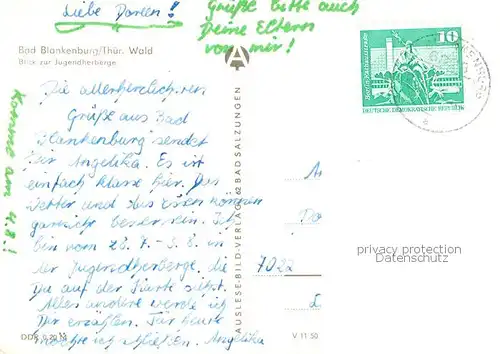 Liebe Doreen!
Grüße bitte auch
Deine Eltern
von mir!
Bad Blankenburg/Thür. Wald
Blick zur Jugendherberge
Die allerherzlichsten
Grüße aus Bad
Blankenburg sendet
Dir Angelika. Es ist
einfach klasse hier. Das
Wetter und das Essen können
garnicht besser sein. Ich
bin vom 28.7.-3.8. in
der Jugendherberge, die
Du auf der Karte siehst.
Alles andere werde ich
Dir erzählen. Für heute
möchte ich schließen. Angelika
Komme am 4.8.!
DDR 0,20 M
AUSLESE-BILD-VERLAG 62 BAD SALZUNGEN
V 11 50
10
DEUTSCHE DEMOKRATISCHE REPUBLIK
7022
privacy protection
Datenschutz